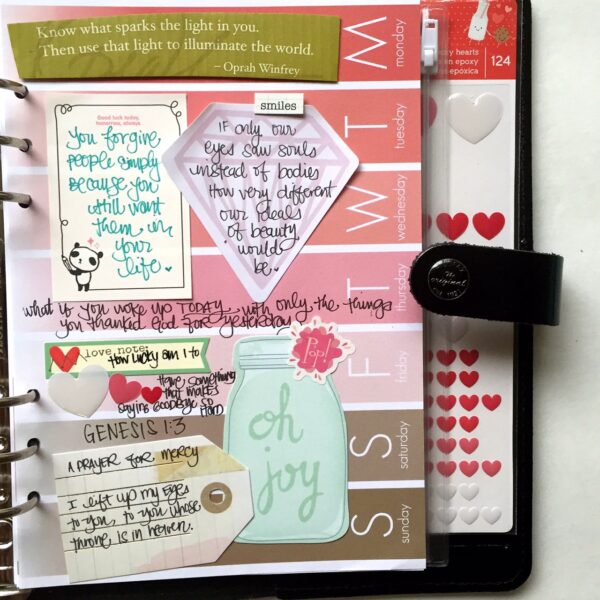 Know what sparks the light in you.
Then use that light to illuminate the world.
– Oprah Winfrey
M
monday
Good luck today,
tomorrow, always.
You forgive
people simply
because you
still want
them in
your
life.
smiles
IF only our
eyes saw souls
instead of bodies
How very different
our ideals
of beauty
would
be.
T
tuesday
W
wednesday
T
thursday
what if you woke up TODAY with only the things
you thanked God for yesterday
love note:
How lucky am I to
Have something
that makes
saying goodbye so
Hard
Pop!
F
friday
GENESIS 1:3
oh
joy
S
saturday
A PRAYER FOR mercy
I lift up my eyes
to you, to you whose
throne is in heaven.
S
sunday
hearts
en epoxy
epóxica
124
original